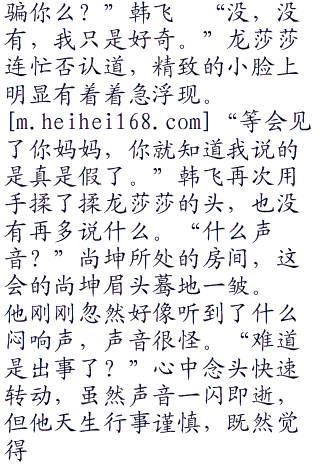 骗你么？”韩飞　“没，没
有，我只是好奇。”龙莎莎
连忙否认道，精致的小脸上
明显有着着急浮现。
[m.heihei168.com]“等会见
了你妈妈，你就知道我说的
是真是假了。”韩飞再次用
手揉了揉龙莎莎的头，也没
有再多说什么。“什么声
音？”尚坤所处的房间，这
会的尚坤眉头蓦地一皱。
他刚刚忽然好像听到了什么
闷响声，声音很怪。“难道
是出事了？”心中念头快速
转动，虽然声音一闪即逝，
但他天生行事谨慎，既然觉
得